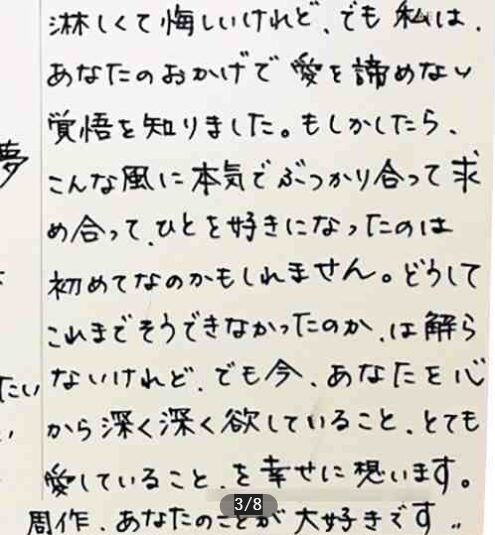 淋しくて悔しいけれど、でも私は、
あなたのおかげで愛を諦めない
覚悟を知りました。もしかしたら、
夢
こんな風に本気でぶつかり合って求
め合って、ひとを好きになったのは
初めてなのかもしれません。どうして
これまでそうできなかったのか、は解ら
たい
ないけれど、でも今、あなたを心
から深く深く欲していること、とても
愛していること、を幸せに想います。
3/8
周作、あなたのことが大好きです。